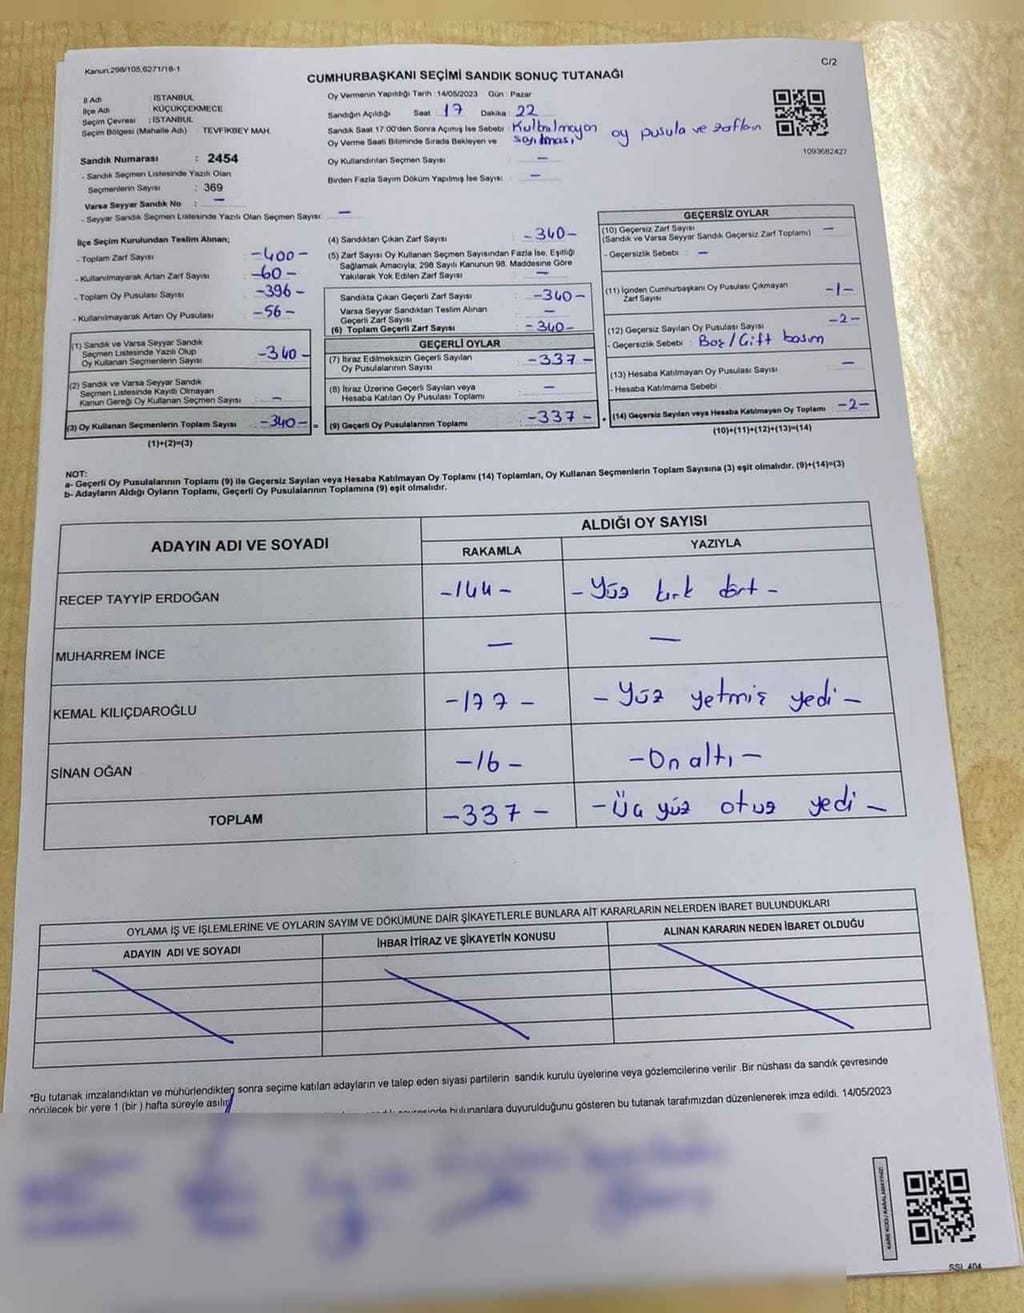 Kanun:298/105,6271/18-1
C/2
CUMHURBAŞKANI SEÇİMİ SANDIK SONUÇ TUTANAĞI
İl Adı : İSTANBUL
İlçe Adı : KÜÇÜKÇEKMECE
Seçim Çevresi : İSTANBUL
Seçim Bölgesi (Mahalle Adı) : TEVFİKBEY MAH.
Sandık Numarası : 2454
- Sandık Seçmen Listesinde Yazılı Olan
Seçmenlerin Sayısı : 369
Varsa Seyyar Sandık No : —
- Seyyar Sandık Seçmen Listesinde Yazılı Olan Seçmen Sayısı: —
Oy Vermenin Yapıldığı Tarih : 14/05/2023 Gün : Pazar
Sandığın Açıldığı Saat 17 Dakika : 22
Sandık Saat 17:00'den Sonra Açımış İse Sebebi : Kullnılmayan oy pusula ve zafların
Oy Verme Saati Bitiminde Sırada Bekleyen ve sayılması,
Oy Kullandırılan Seçmen Sayısı —
Birden Fazla Sayım Döküm Yapılmış İse Sayısı : —
1093682427
İlçe Seçim Kurulundan Teslim Alınan;
- Toplam Zarf Sayısı -400-
- Kullanılmayarak Artan Zarf Sayısı -60-
- Toplam Oy Pusulası Sayısı -396-
- Kullanılmayarak Artan Oy Pusulası -56-
(1) Sandık ve Varsa Seyyar Sandık
Seçmen Listesinde Yazılı Olup
Oy Kullanan Seçmenlerin Sayısı -340-
(2) Sandık ve Varsa Seyyar Sandık
Seçmen Listesinde Kayıtlı Olmayan
Kanun Gereği Oy Kullanan Seçmen Sayısı : —
(3) Oy Kullanan Seçmenlerin Toplam Sayısı : -340- =
(1)+(2)=(3)
(4) Sandıktan Çıkan Zarf Sayısı -340-
(5) Zarf Sayısı Oy Kullanan Seçmen Sayısından Fazla İse, Eşitliği
Sağlamak Amacıyla; 298 Sayılı Kanunun 98. Maddesine Göre
Yakılarak Yok Edilen Zarf Sayısı : —
Sandıkta Çıkan Geçerli Zarf Sayısı : -340-
Varsa Seyyar Sandıktan Teslim Alınan
Geçerli Zarf Sayısı : —
(6) Toplam Geçerli Zarf Sayısı : -340-
GEÇERLİ OYLAR
(7) İtiraz Edilmeksizin Geçerli Sayılan
Oy Pusulalarının Sayısı : -337-
(8) İtiraz Üzerine Geçerli Sayılan veya
Hesaba Katılan Oy Pusulası Toplamı —
(9) Geçerli Oy Pusulalarının Toplamı : -337- +
GEÇERSİZ OYLAR
(10) Geçersiz Zarf Sayısı
(Sandık ve Varsa Seyyar Sandık Geçersiz Zarf Toplamı) —
- Geçersizlik Sebebi : —
(11) İçinden Cumhurbaşkanı Oy Pusulası Çıkmayan
Zarf Sayısı -1-
(12) Geçersiz Sayılan Oy Pusulası Sayısı -2-
- Geçersizlik Sebebi : Boş/Çift basım
(13) Hesaba Katılmayan Oy Pusulası Sayısı —
- Hesaba Katılmama Sebebi
(14) Geçersiz Sayılan veya Hesaba Katılmayan Oy Toplamı -2-
(10)+(11)+(12)+(13)=(14)
NOT:
a- Geçerli Oy Pusulalarının Toplamı (9) ile Geçersiz Sayılan veya Hesaba Katılmayan Oy Toplamı (14) Toplamları, Oy Kullanan Seçmenlerin Toplam Sayısına (3) eşit olmalıdır. (9)+(14)=(3)
b- Adayların Aldığı Oyların Toplamı, Geçerli Oy Pusulalarının Toplamına (9) eşit olmalıdır.
ADAYIN ADI VE SOYADI
ALDIĞI OY SAYISI
RAKAMLA
YAZIYLA
RECEP TAYYİP ERDOĞAN -144- -Yüz kırk dört-
MUHARREM İNCE — —
KEMAL KILIÇDAROĞLU -177- -Yüz yetmiş yedi-
SİNAN OĞAN -16- -On altı-
TOPLAM -337- -Üç yüz otuz yedi-
OYLAMA İŞ VE İŞLEMLERİNE VE OYLARIN SAYIM VE DÖKÜMÜNE DAİR ŞİKAYETLERLE BUNLARA AİT KARARLARIN NELERDEN İBARET BULUNDUKLARI
ADAYIN ADI VE SOYADI
İHBAR İTİRAZ VE ŞİKAYETİN KONUSU
ALINAN KARARIN NEDEN İBARET OLDUĞU
*Bu tutanak imzalandıktan ve mühürlendikten sonra seçime katılan adayların ve talep eden siyasi partilerin sandık kurulu üyelerine veya gözlemcilerine verilir. Bir nüshası da sandık çevresinde
görülecek bir yere 1 (bir) hafta süreyle asılır
bulunanlara duyurulduğunu gösteren bu tutanak tarafımızdan düzenlenerek imza edildi. 14/05/2023
KARE KODU KARALAMAYINIZ!